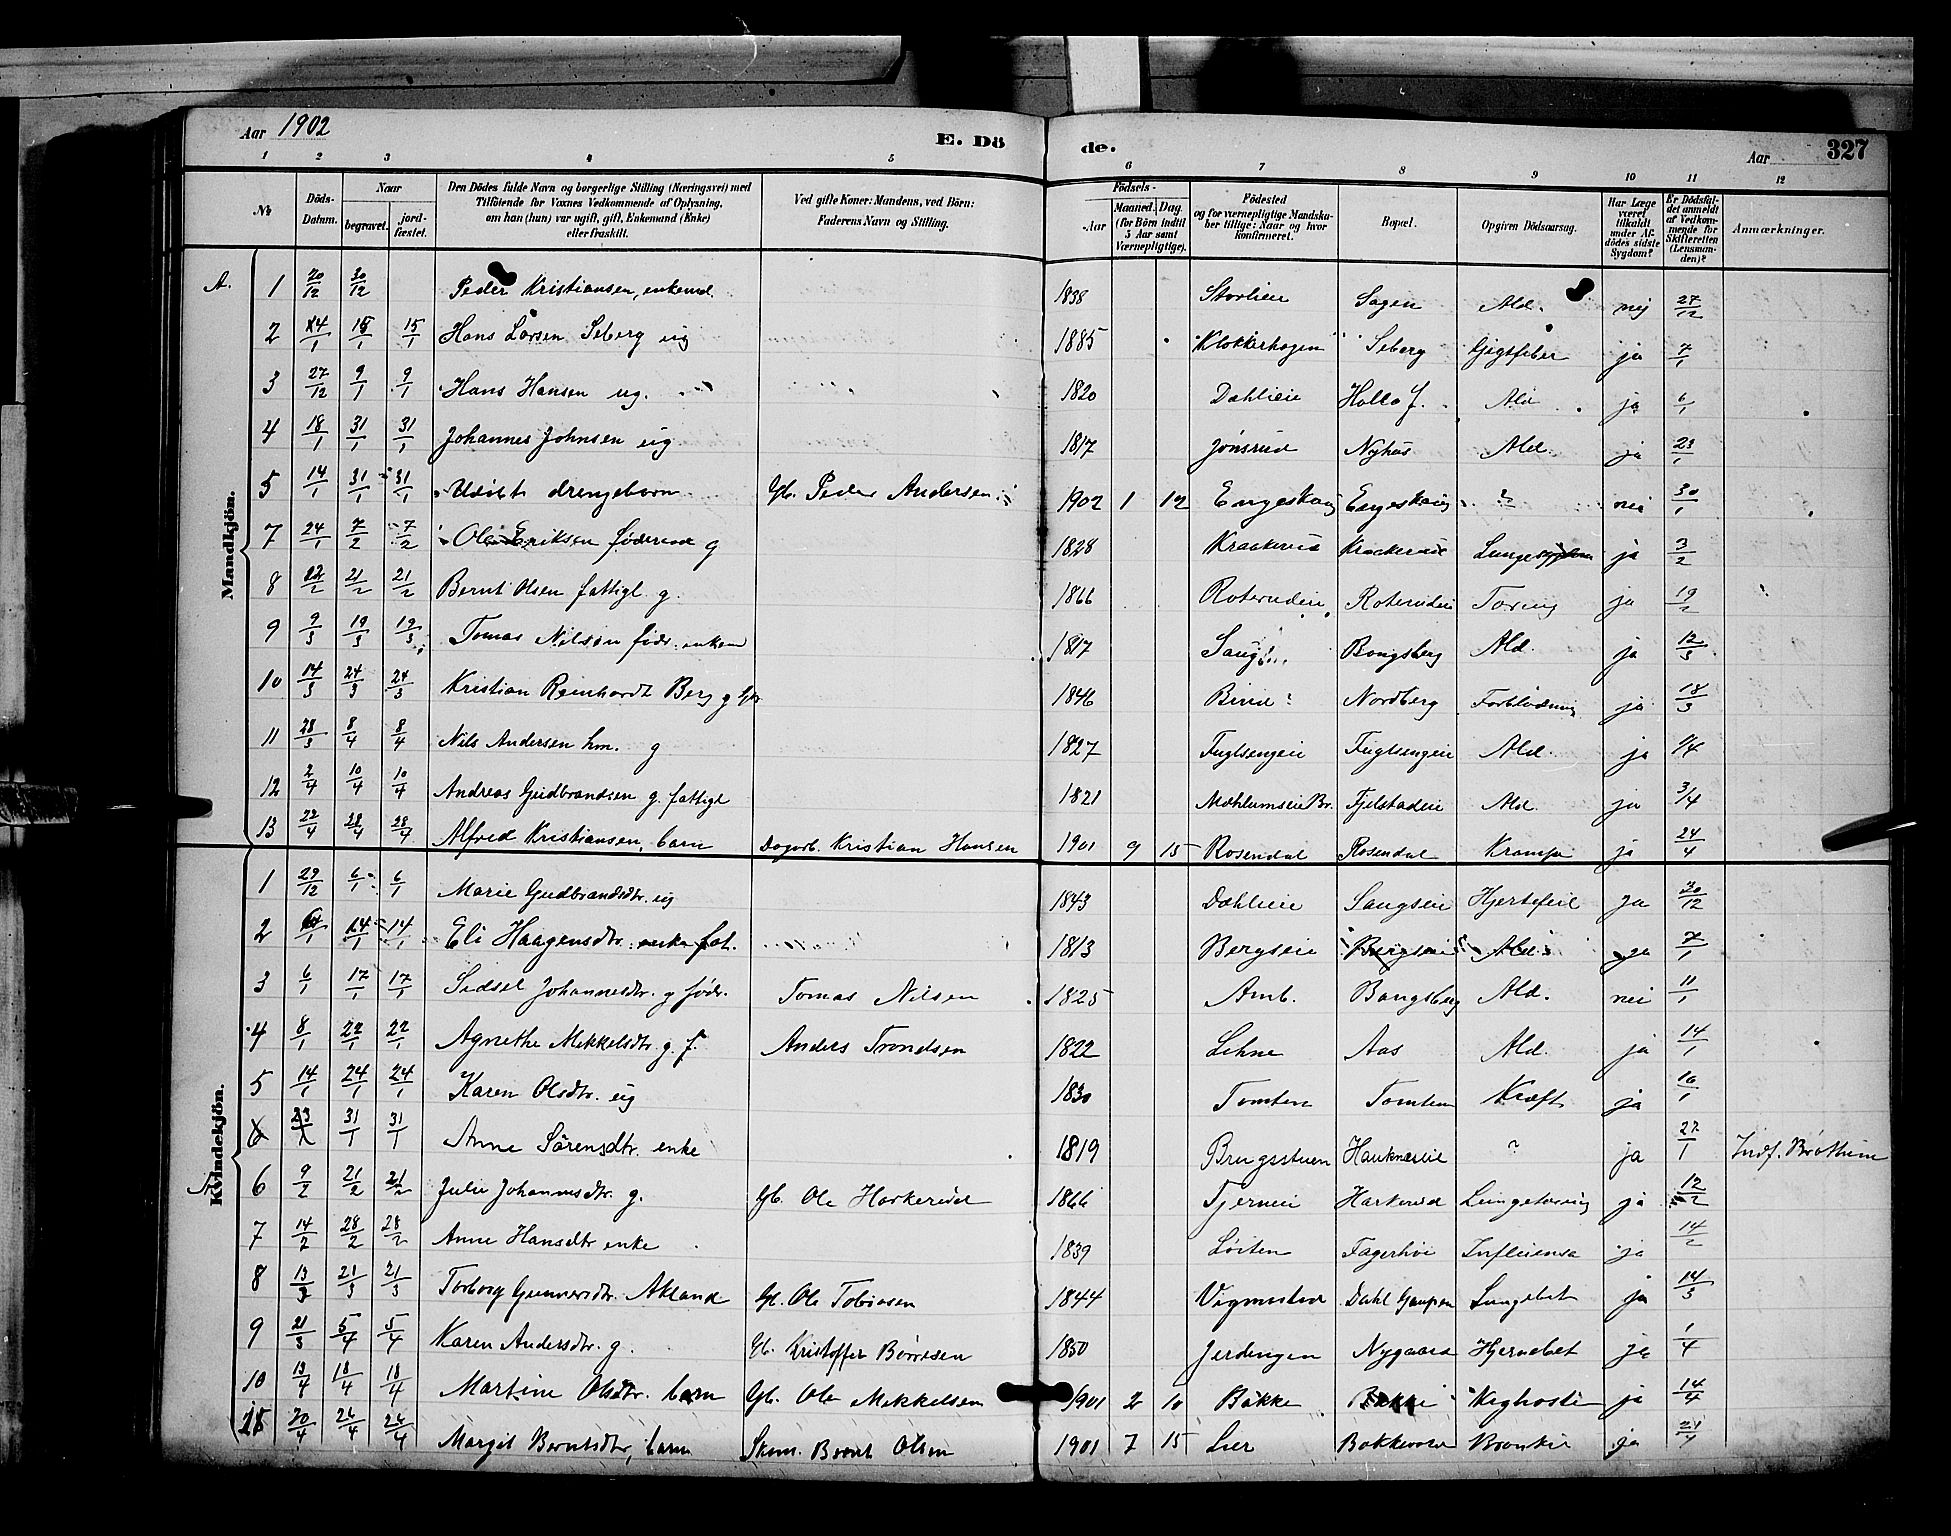 Aar 1902 E. Dö de. Aar 327
1 2 3 4 5 6 7 8 9 10 11 12
№ Döds-Datum. Naar begravet. jord-fæstet. Den Dödes fulde Navn og borgerlige Stilling (Næringsvei) med Tilföiende for Voxnes Vedkommende af Oplysning, om han (hun) var ugift, gift, Enkemand (Enke) eller fraskilt. Ved gifte Koner: Mandens, ved Börn: Faderens Navn og Stilling. Födsels-Aar Maaned. Dag. (for Börn indtil 5 Aar samt Værnepligtige). Födested og for værnepligtige Mandskaber tillige: Naar og hvor konfirmeret. Bopæl. Opgiven Dödsaarsag. Har Læge været tilkaldt under Afdödes sidste Sygdom? Er Dödsfaldet anmeldt af Vedkommende for Skifteretten (Lensmanden)? Anmærkninger.
Mandkjön.
A. 1 20/12 30/12 Peder Kristiansen, enkemd. 1838 Storlien Sagen Ald. nej 27/12
2 4/1 15/1 15/1 Hans Larsen Seberg ug 1885 Klokkerhagen Seberg Gigtfeber ja 7/1
3 27/12 9/1 9/1 Hans Hansen ug. 1820 Dahlieie Holla f. Ald ja 6/1
4 18/1 31/1 31/1 Johannes Johnsen ug 1817 Jönsrud Nyhus Ald. ja 23/1
5 14/1 31/1 31/1 Udöbt drengebarn Gb. Peder Andersen 1902 1 12 Engeskaug Engeskaug ? nei 30/1
7 24/1 7/2 7/2 Ole Eriksen föderaad g 1828 Kraakerud Kraakerud Lunge ja 3/2
8 12/2 21/2 21/2 Bernt Olsen fattigl. g. 1866 Roterudeie Roterudeie Tæring ja 19/2
9 9/3 19/3 19/3 Tomas Nilsen födr. enkem 1817 Saug Bangsberg Ald. ja 12/3
10 14/3 24/3 24/3 Kristian Reinhardt Berg g 1846 Birid ? Nordberg Forblödning ja 18/3
11 28/3 8/4 8/4 Nils Andersen hm. g 1827 Fuglsengeie Fuglsengeie Ald. ja 1/4
12 2/4 10/4 10/4 Andreas Gudbrandsen g. fattigl 1821 Mæhlumseie Br. Fjelstadeie Ald ja 3/4
13 22/4 28/4 28/4 Alfred Kristiansen, barn Dagarb. Kristian Hansen 1901 9 15 Rosendal Rosendal Krampe ja 24/4
Kvindekjön.
1 29/12 6/1 6/1 Marie Gudbrandsdtr. ug 1843 Dæhlieie Saugseie Hjertefeil ja 30/12
2 14/1 14/1 Eli Haagensdtr. enke fat. 1813 Bergseie Bergseie Ald. ja 7/1
3 6/1 17/1 17/1 Sidsel Johannesdtr. g födr. Tomas Nilsen 1825 Amb. Bangsberg Ald. nei 11/1
4 8/1 22/1 22/1 Agnethe Mikkelsdtr. g. f. Anders Trondsen 1822 Lehne Aas Ald. ja 14/1
5 14/1 24/1 24/1 Karen Olsdtr. ug 1830 Tomten Tomten Kræft ja 16/1
6 23/1 31/1 31/1 Anne Sörensdtr. enke 1819 Brugsstuen Hauknæseie ? ja 27/1 Indf. Bröttum
6 9/2 21/2 21/2 Julie Johannesdtr. g. Gb. Ole Harkerud 1866 Tjerneie Harkerud Lungetæring ja 12/2
7 14/2 28/2 28/2 Anne Hansdtr enke 1839 Löiten Fagerhöi Influensa ja 14/2
8 13/3 21/3 21/3 Torborg Gunnersdtr. Akland Gb. Ole Tobiasen 1844 Vigmostad Dahl Gaupen Lungebet ja 14/3
9 21/3 5/4 5/4 Karen Andersdtr. g. Gb. Kristoffer Börresen 1850 Jerdengen Nygaard Hjernebet ja 1/4
10 13/4 18/4 18/4 Martine Olsdtr. barn Gb. Ole Mikkelsen 1901 2 10 Bakke Bakke Kighoste ja 14/4
11 20/4 26/4 26/4 Margit Berntsdtr, barn Skom. Bernt Olsen 1901 7 15 Lier Bakkerud Bronkit ja 21/4